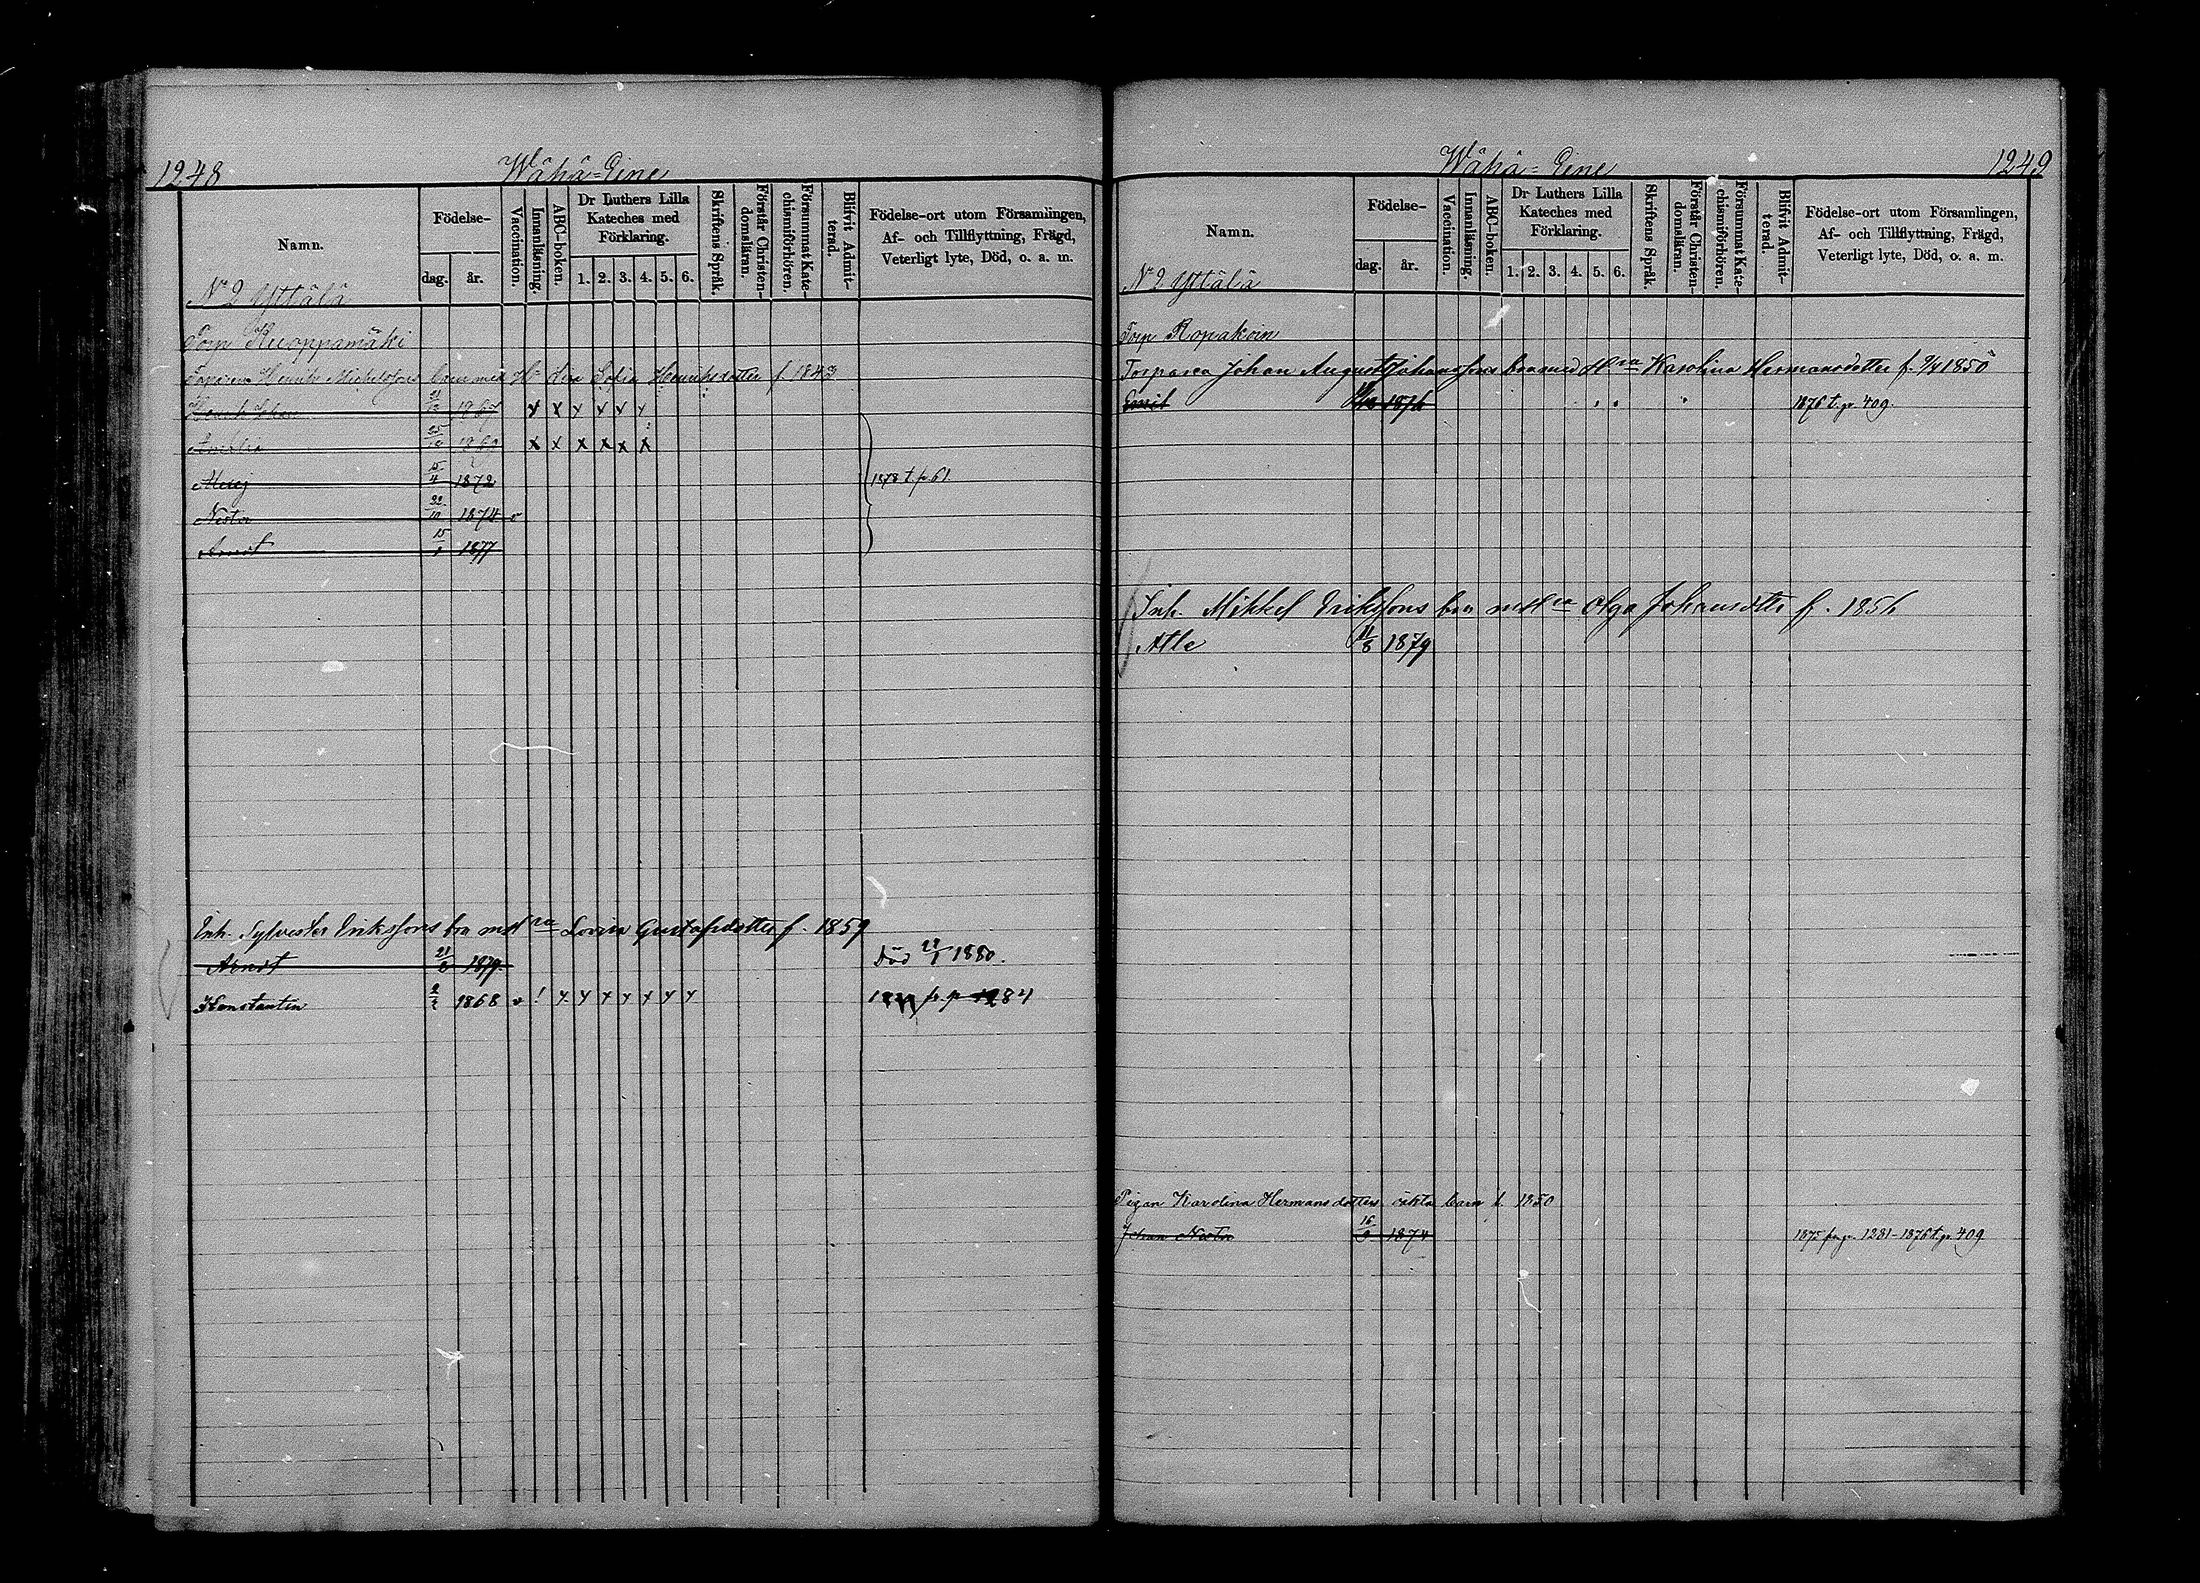 1248 Wähä=Eine
Namn. Födelse- dag. år. Vaccination. Innanläsning. ABC-boken. Dr Luthers Lilla Kateches med Förklaring. 1. 2. 3. 4. 5. 6. Skriftens Språk. Förstår Christendomsläran. Försummat Katechismiförhören. Blifvit Admitterad. Födelse-ort utom Församlingen, Af- och Tillflyttning, Frägd, Veterligt lyte, Död, o. a. m.
No 2 Yttälä
Torp Kuoppamäki
Torparen Henrik Michelssons barn med H Lisa Sofia Henriksdotter f. 1843
Henrik Johan 21/12 1867 x x x x x x
Amalia 25/10 1869 x x x x x x
15/4 1872 1878 t. p. 61.
Nestor 22/10 1874 v
Arvot 15/1 1877
Inh. Sylvester Erikssons barn m H ra Lovisa Gustafsdotter f. 1859
Arvot 21/2 1879. Död 28/1 1880.
Konstantin 2/2 1868 v ! x x x x x x x fr. p. 1284
Wähä=Eine 1249
Namn. Födelse- dag. år. Vaccination. Innanläsning. ABC-boken. Dr Luthers Lilla Kateches med Förklaring. 1. 2. 3. 4. 5. 6. Skriftens Språk. Förstår Christendomsläran. Försummat Katechismiförhören. Blifvit Admitterad. Födelse-ort utom Församlingen, Af- och Tillflyttning, Frägd, Veterligt lyte, Död, o. a. m.
No 2 Yttälä
Torp Ropakoin
Torparen Johan August Johanssons barn med H ra Karolina Hermansdotter f. 9/4 1850
Emil 1876 1876 t. p. 409.
Inh. Mikkel Erikssons barn m H ra Olga Johansdotter f. 1856
Atle 11/8 1879
Pigan Karolina Hermansdotters oäkta barn f. 1850
Johan Nestor 16/9 1874 1875 fr. p. 1281 - 1876 t. p. 409